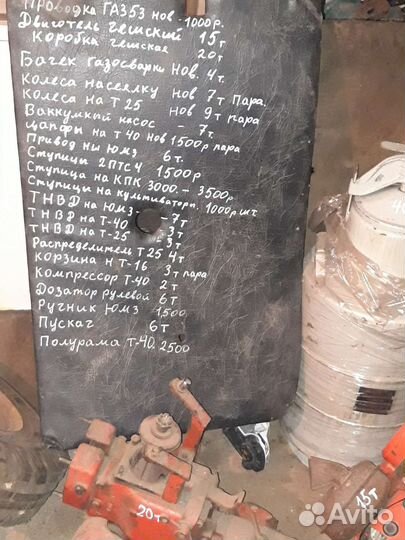 Проводка ГАЗ53 нов - 1000р.
Двигатель чешский 15т
Коробка чешская 20т
Бачек газосварки нов. 4т.
Колеса насеялку нов 7т пара.
Колеса на Т25 нов 9т пара
Ваккумный насос - 7т.
цапфы на Т40 нов 1500р пара
Привод ны Юмз 6т.
Ступицы 2ПТС4 1500р
Ступица на КПК 3000. - 3500р
Ступицы на культиваторп. 1000р шт
ТНВД на Юмз - 7т
ТНВД на Т-40 3т
ТНВД на Т-25 3т
Распределитель Т25 4т
Корзина н Т-16 3т пара
Компрессор Т-40 2т
Дозатор рулевой 6т
Ручник Юмз 1,500
Пускач 6т
Полурама Т-40. 2500
20т
15т
Avito